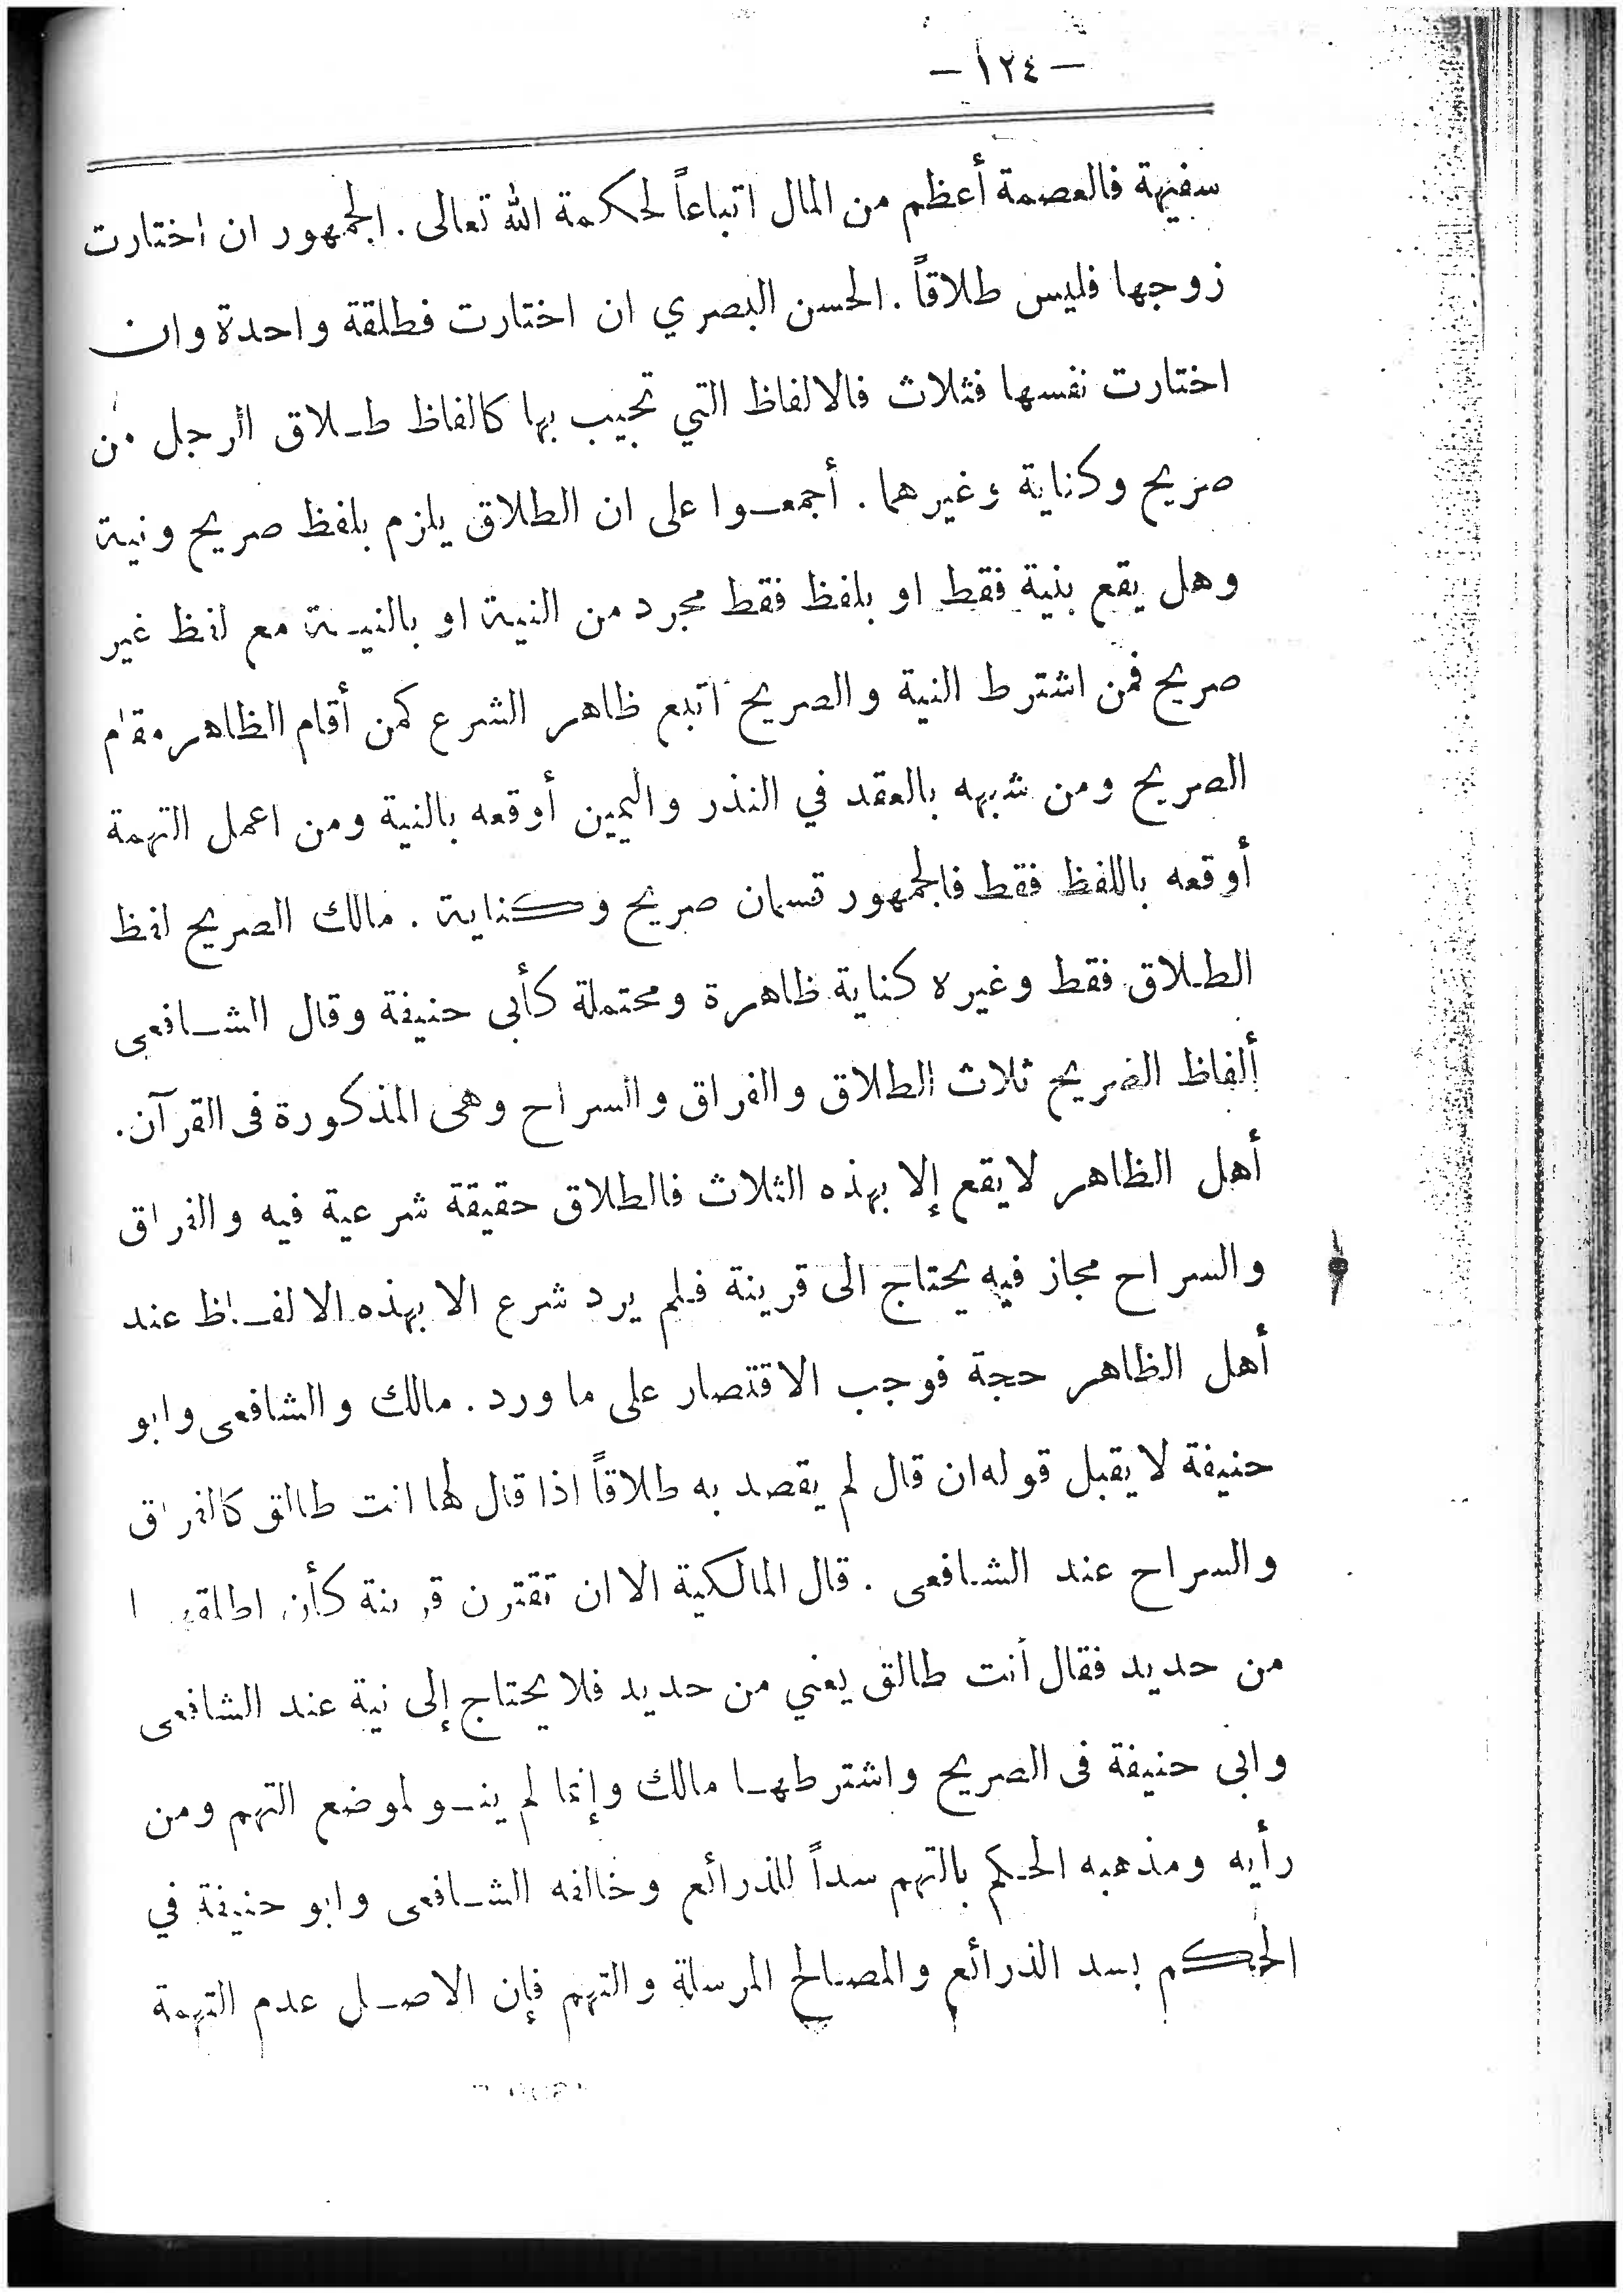 — ١٢٤ —
سفيهة فالعصمة أعظم من المال اتباعاً لحكمة الله تعالى . الجمهور ان اختارت
زوجها فليس طلاقاً . الحسن البصري ان اختارت فطلقة واحدة وان
اختارت نفسها فثلاث فالالفاظ التي تجيب بها كالفاظ طلاق الرجل من
صريح وكناية وغيرهما . أجمعوا على ان الطلاق يلزم بلفظ صريح ونية
وهل يقع بنية فقط او بلفظ فقط مجرد من النية او بالنية مع لفظ غير
صريح فمن اشترط النية والصريح اتبع ظاهر الشرع كمن أقام الظاهر مقام
الصريح ومن شبهه بالعقد في النذر واليمين أوقعه بالنية ومن اعمل التهمة
أوقعه باللفظ فقط فالجمهور قسمان صريح وكناية . مالك الصريح لفظ
الطلاق فقط وغيره كناية ظاهرة ومحتملة كأبى حنيفة وقال الشافعى
ألفاظ الصريح ثلاث الطلاق والفراق والسراح وهى المذكورة فى القرآن .
أهل الظاهر لايقع إلا بهذه الثلاث فالطلاق حقيقة شرعية فيه والفراق
والسراح مجاز فيه يحتاج الى قرينة فلم يرد شرع الا بهذه الالفاظ عند
أهل الظاهر حجة فوجب الاقتصار على ما ورد . مالك والشافعى وابو
حنيفة لا يقبل قوله ان قال لم يقصد به طلاقاً اذا قال لها انت طالق كالفراق
والسراح عند الشافعى . قال المالكية الا ان تقترن قرينة كأن اطلقها
من حديد فقال أنت طالق يعني من حديد فلا يحتاج إلى نية عند الشافعى
وابى حنيفة فى الصريح واشترطها مالك وإنما لم ينو لموضع التهم ومن
رأيه ومذهبه الحكم بالتهم سداً للذرائع وخالفه الشافعى وابو حنيفة في
الحكم بسد الذرائع والمصالح المرسلة والتهم فإن الاصل عدم التهمة